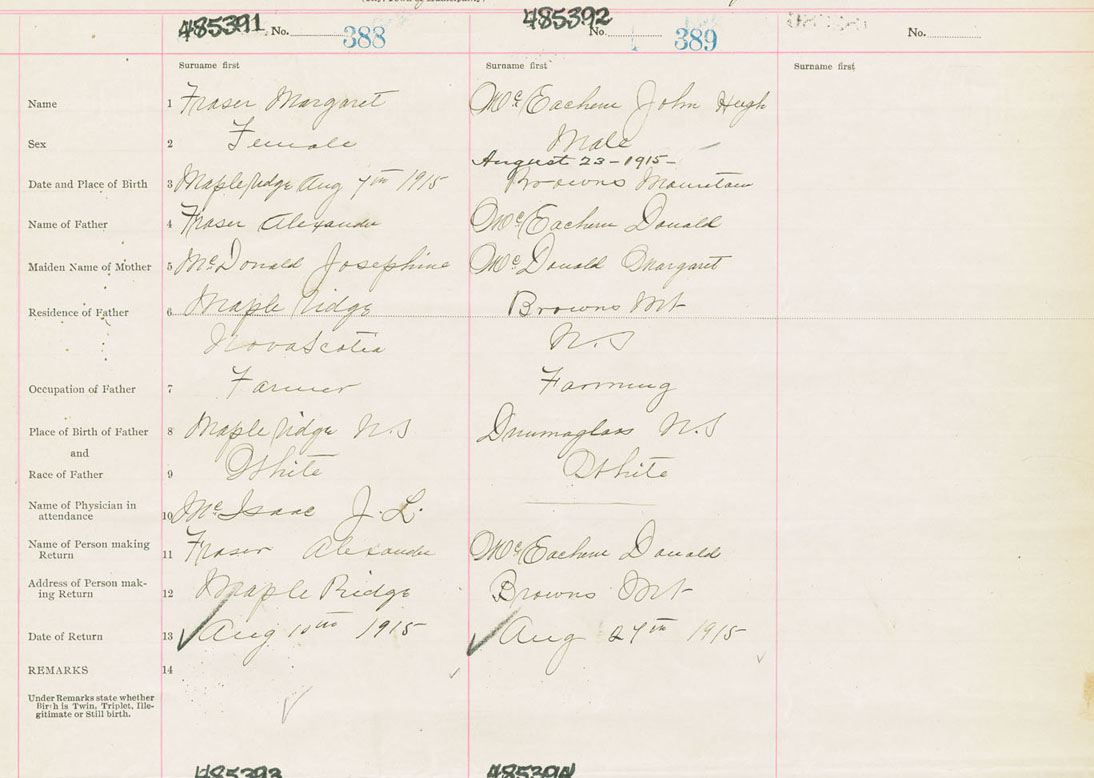 485391 No. 388
485392 No. 389
No.
Surname first
Surname first
Surname first
Name 1 Fraser Margaret
McEachern John Hugh
Sex 2 Female
Male
August 23-1915-
Date and Place of Birth 3 Maple ridge Aug 7th 1915
Browns Mountain
Name of Father 4 Fraser Alexander
McEachern Donald
Maiden Name of Mother 5 McDonald Josephine
McDonald Margaret
Residence of Father 6 Maple ridge
Browns Mt
Nova Scotia
N.S
Occupation of Father 7 Farmer
Farming
Place of Birth of Father 8 Maple ridge N.S
Drumaglass N.S
and
Race of Father 9 White
White
Name of Physician in
attendance 10 McIsaac J. L.
Name of Person making
Return 11 Fraser Alexander
McEachern Donald
Address of Person mak-
ing Return 12 Maple Ridge
Browns Mt
Date of Return 13 Aug 10th 1915
Aug 27th 1915
REMARKS 14
Under Remarks state whether
Birth is Twin, Triplet, Ille-
gitimate or Still birth.
485393
485394